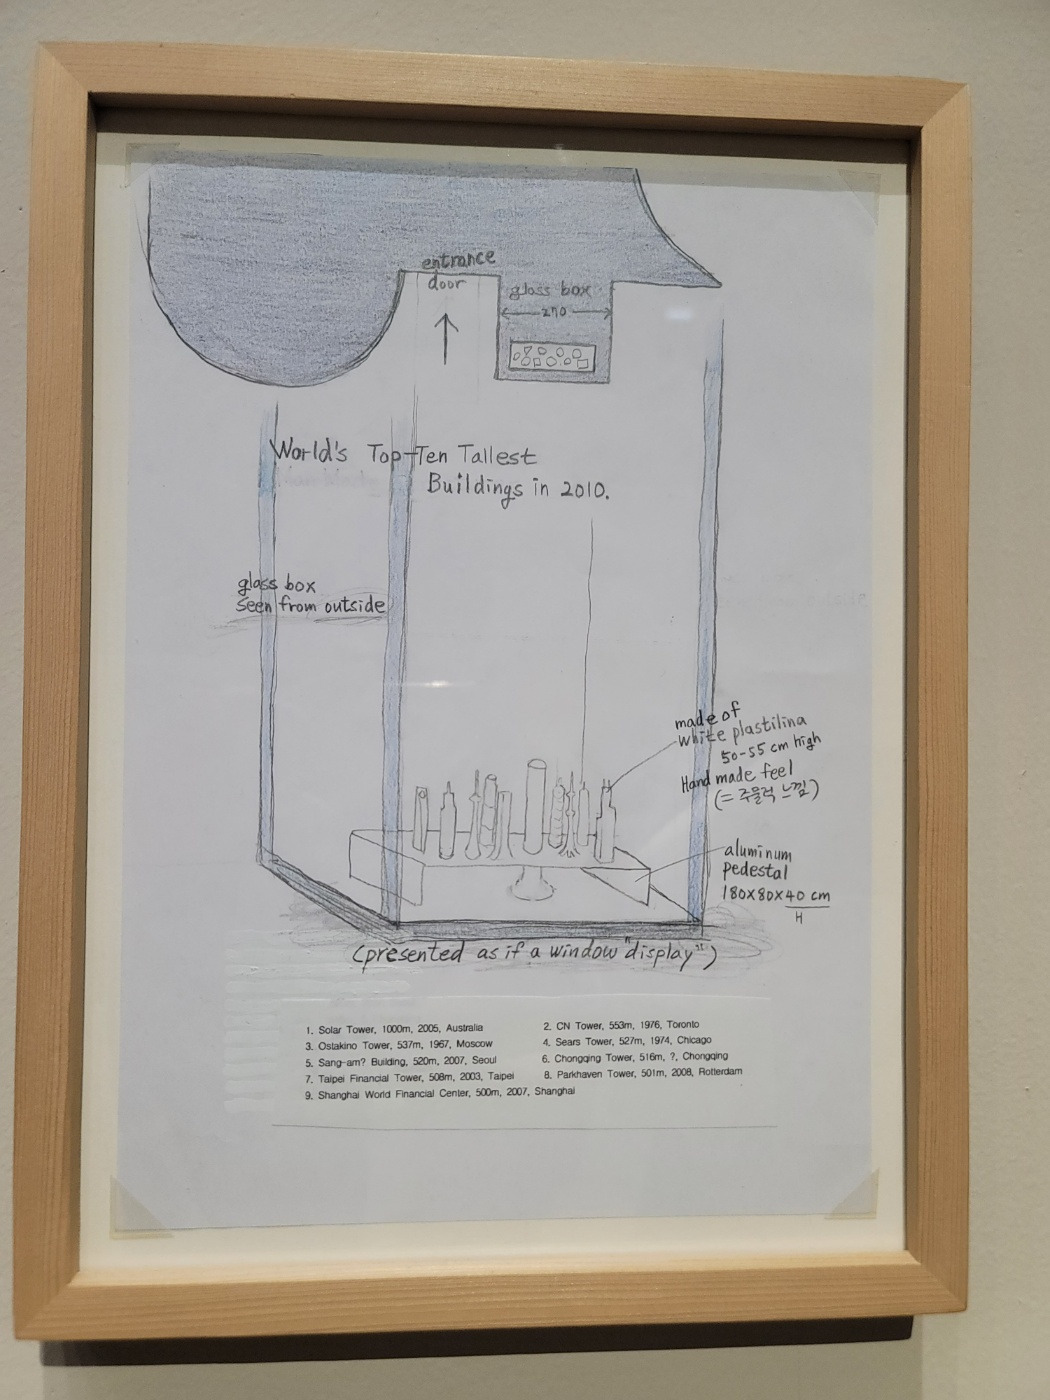 entrance
door
glass box
270
World's Top-Ten Tallest
Buildings in 2010.
glass box
seen from outside
made of
white plastilina
50-55 cm high
Hand made feel
(= 주물럭 느낌)
aluminum
pedestal
180x80x40 cm
H
(presented as if a window "display")
1. Solar Tower, 1000m, 2005, Australia
2. CN Tower, 553m, 1976, Toronto
3. Ostakino Tower, 537m, 1967, Moscow
4. Sears Tower, 527m, 1974, Chicago
5. Sang-am? Building, 520m, 2007, Seoul
6. Chongqing Tower, 516m, ?, Chongqing
7. Taipei Financial Tower, 508m, 2003, Taipei
8. Parkhaven Tower, 501m, 2008, Rotterdam
9. Shanghai World Financial Center, 500m, 2007, Shanghai